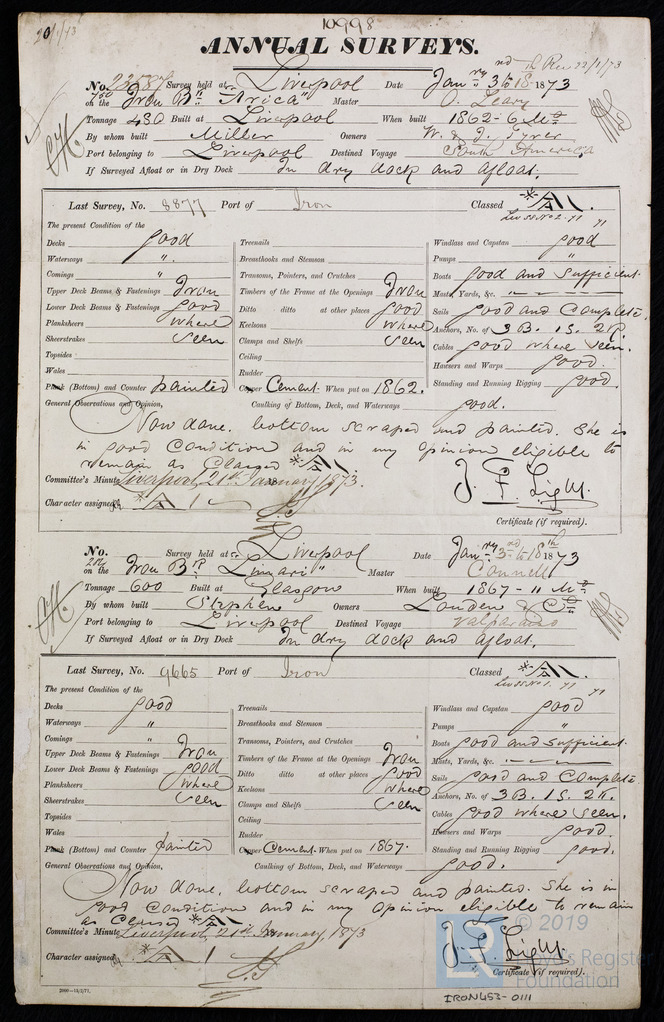 10998
20/1/73
ANNUAL SURVEYS.
Rec 22/1/73
No. 23587 Survey held at Liverpool Date Jany 3rd to 18th 1873
on the Iron Bk "Arica" Master J. Leary
Tonnage 480 Built at Liverpool When built 1862-6 Mo
By whom built Miller Owners W. & J. Tyrer
Port belonging to Liverpool Destined Voyage South America
If Surveyed Afloat or in Dry Dock In dry dock and afloat.
Last Survey, No. 8877 Port of Iron Classed
The present Condition of the
Decks good Treenails Windlass and Capstan good
Waterways " Breasthooks and Stemson Pumps "
Comings " Transoms, Pointers, and Crutches Boats good and sufficient.
Upper Deck Beams & Fastenings Iron Timbers of the Frame at the Openings Iron Masts, Yards, &c. "
Lower Deck Beams & Fastenings good Ditto ditto at other places good Sails good and Complete
Planksheers where Keelsons where Anchors, No. of 3B. 1S. 2K.
Sheerstrakes seen Clamps and Shelfs seen Cables good where seen.
Topsides Ceiling Hawsers and Warps good.
Wales Rudder Standing and Running Rigging good.
Plank (Bottom) and Counter painted Copper Cement. When put on 1862.
General Observations and Opinion, Caulking of Bottom, Deck, and Waterways good.
Now done, bottom scraped and painted. She is
in good condition and in my opinion eligible to
remain as Classed
Committee's Minute Liverpool, 21st January 1873.
J. F. Light.
Character assigned
Certificate (if required).
No. Survey held at Liverpool Date Jany 3rd to 18th 1873
on the Iron Bk "Limari" Master Connell
Tonnage 600 Built at Glasgow When built 1867-11 Mo
By whom built Stephen Owners Louden & Co
Port belonging to Liverpool Destined Voyage Valparaiso
If Surveyed Afloat or in Dry Dock In dry dock and afloat.
Last Survey, No. 9665 Port of Iron Classed
The present Condition of the
Decks good Treenails Windlass and Capstan good
Waterways " Breasthooks and Stemson Pumps "
Comings " Transoms, Pointers, and Crutches Boats good and sufficient.
Upper Deck Beams & Fastenings Iron Timbers of the Frame at the Openings Iron Masts, Yards, &c. "
Lower Deck Beams & Fastenings good Ditto ditto at other places good Sails good and Complete
Planksheers where Keelsons where Anchors, No. of 3B. 1S. 2K.
Sheerstrakes seen Clamps and Shelfs seen Cables good where seen.
Topsides Ceiling Hawsers and Warps good.
Wales Rudder Standing and Running Rigging good.
Plank (Bottom) and Counter painted Copper Cement. When put on 1867.
General Observations and Opinion, Caulking of Bottom, Deck, and Waterways good.
Now done, bottom scraped and painted. She is in
good condition and in my opinion eligible to remain
as Classed
Committee's Minute Liverpool, 21st January, 1873
J. F. Light.
Character assigned
Certificate (if required).
LR © 2019 Lloyd's Register Foundation
IRON453-0111